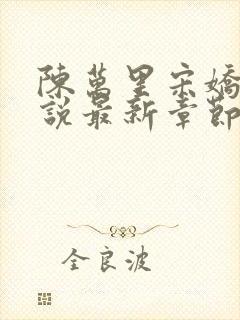 陳萬里宋嬌
說最新章節
全良波